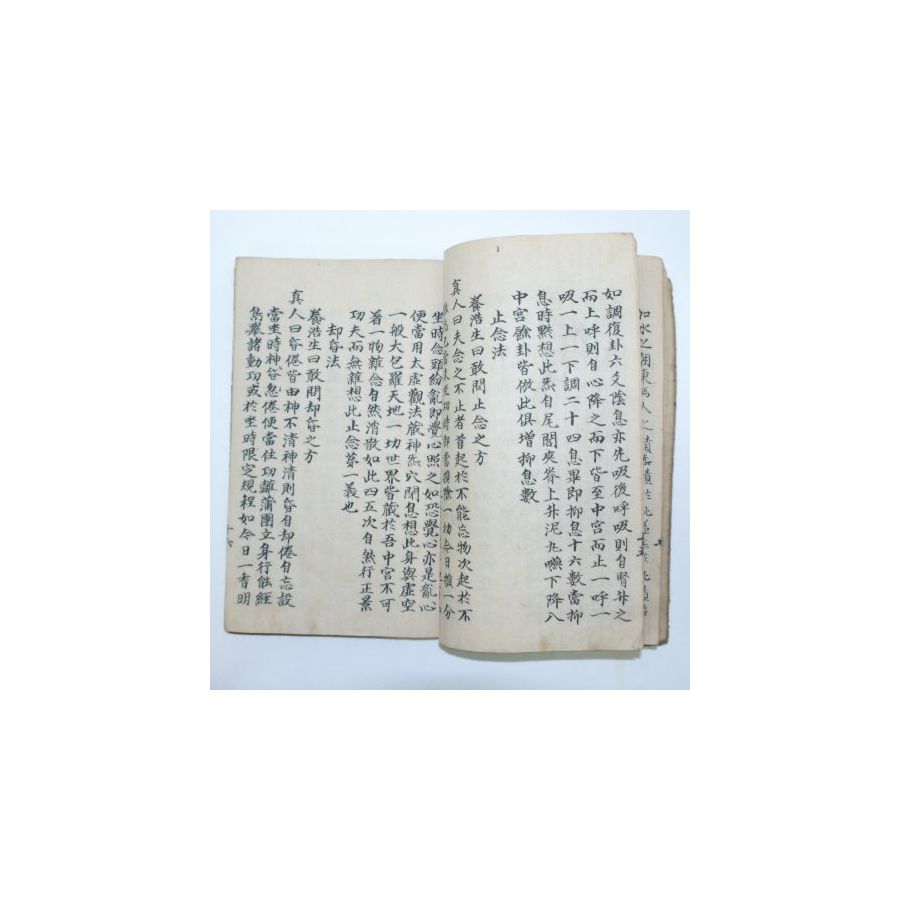 如調復卦六爻陰息亦先吸後呼吸則自腎升之
而上呼則自心降之而下皆至中宮而止一呼一
吸一上一下調二十四息畢即抑息十六數當抑
息時黙想此炁自尾閭夾脊上升泥丸嚥下降八
中宮餘卦皆倣此俱增抑息數
止念法
養浩生曰敢問止念之方
真人曰夫念之不止者首起於不能忘物次起於不
除一切今日擋一分
坐時念頭紛亂即覺心照之如恐覺心亦是亂心
便當用太虛觀法藏神炁穴閉息想此身與虛空
一般大包羅天地一切世界皆藏於吾中宮不可
着一物雜念自然消散如此四五次自然行正景
功夫而無雜想此止念第一義也
却昏法
養浩生曰敢問却昏之方
真人曰昏倦皆由神不清神清則昏自却倦自忘設
當坐時神昏忽倦便當住功離蒲團立身行熊經
鳥擧諸動功或於坐時限定規程如今日一香明
十六
如水之朝東爲人之